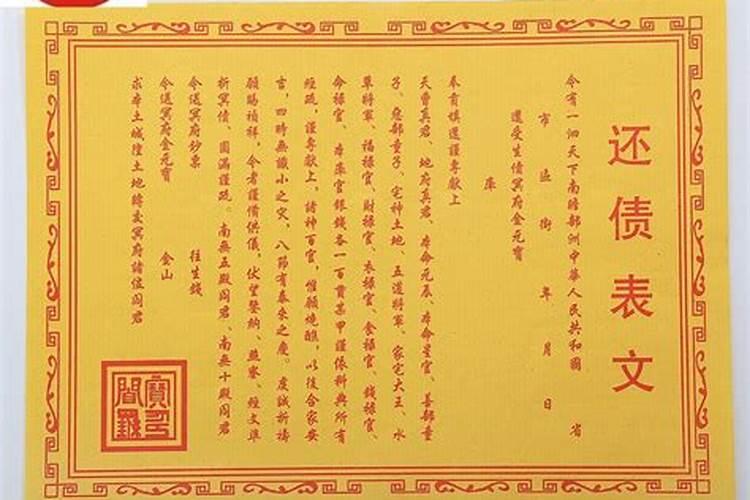 还债表文
今有一泗天下南瞻部洲中華人民共和國 省
市 區 街 年 月 日
還受生債冥府金元寶
庫
奉育填還謹專獻上
天曹真君、地府真君、本命元辰、本命星官、善部童
子、惡部童子、宅神土地、五道將軍、家宅大王、水
草將軍、福祿官、財祿官、衣祿官、食祿官、錢祿官、
命祿官、本庫官銀錢各一百貫某甲謹依科典所有
經疏，謹專獻上，諸神百官，惟願燒醮，以後合家安
吉，四時無識小之灾，八節有泰來之慶。虔誠祈禱
願賜禎祥，令者謹備供儀，伏望鑒納、燕麥、經文準
折冥債、圓滿謹疏。南無五殿阎君、南無十殿阎君
令送冥府鈔票 往生錢
令送冥府金元寶 金山
求本土城隍土地轉交冥府諸位阎君